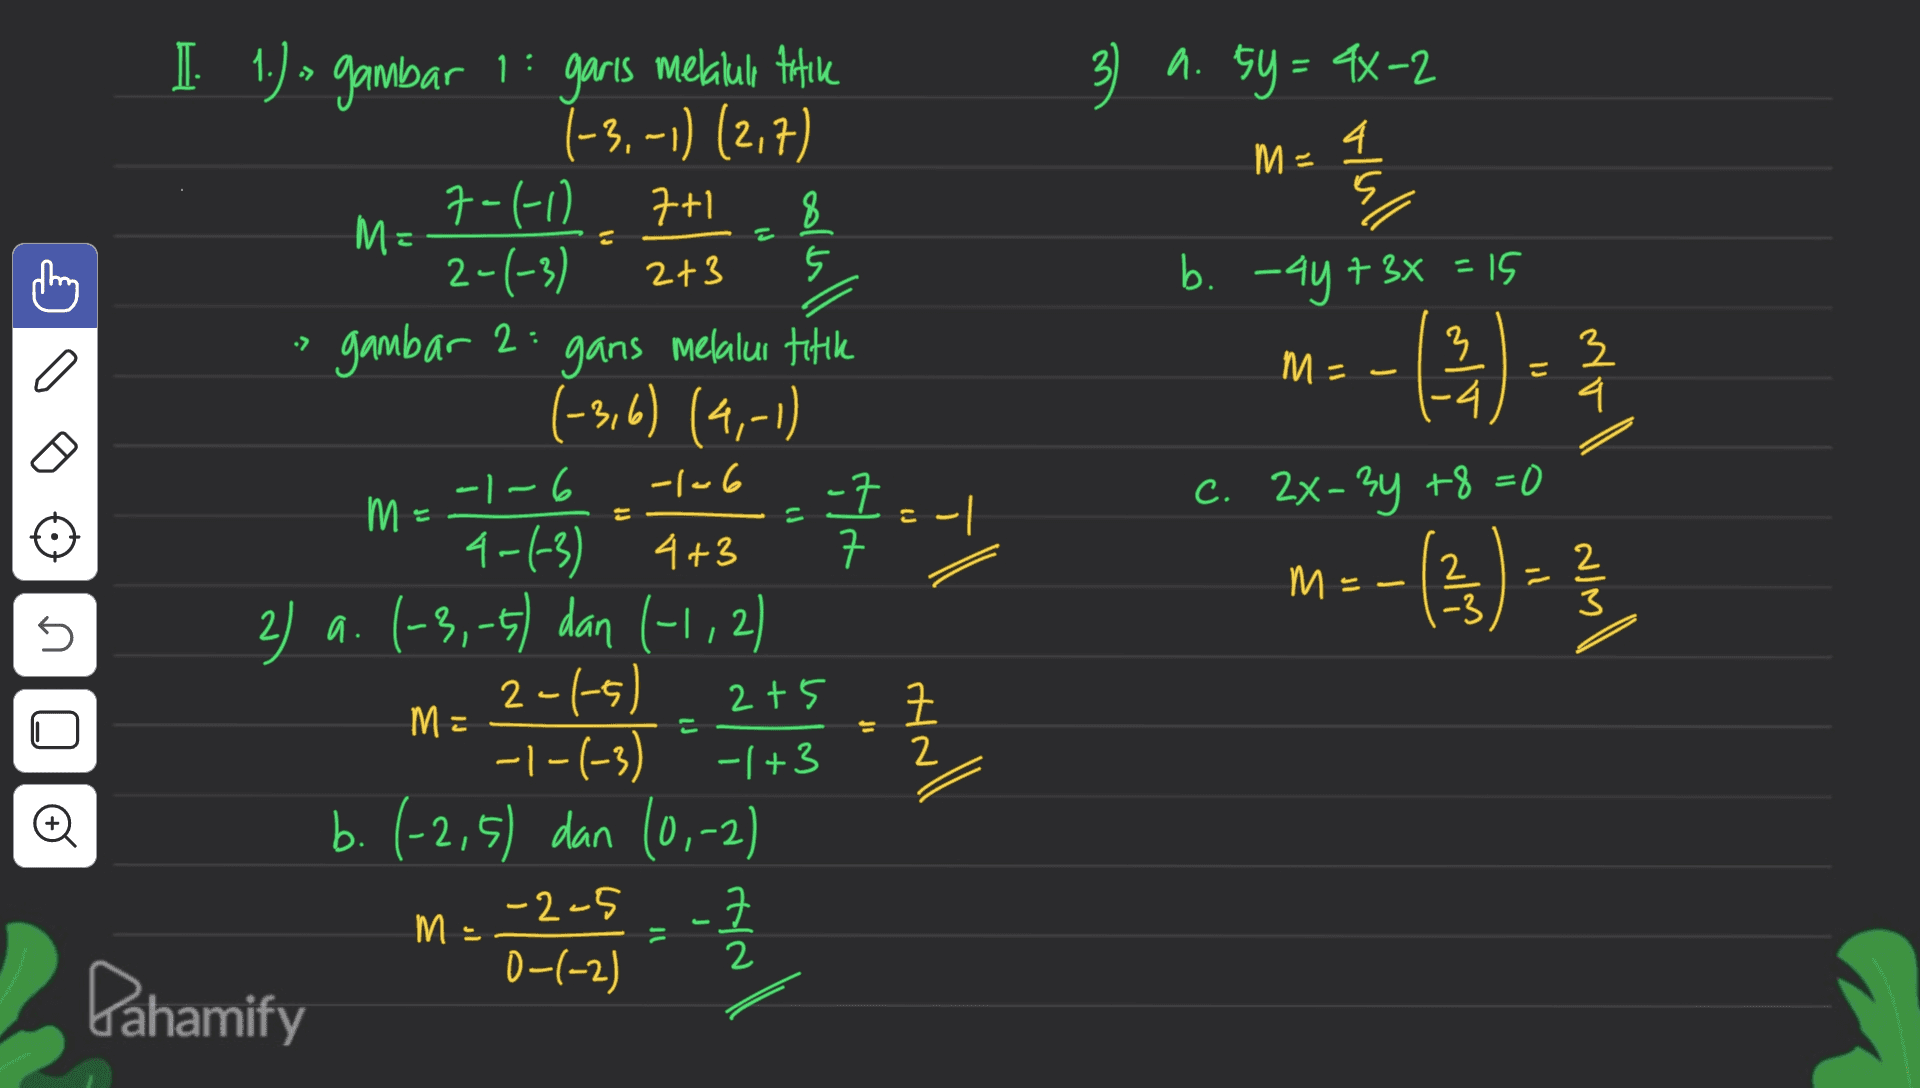 II. 1.) > gambar 1 : garis melalui titik
(-3, -1) (2,7)
M = 7-(-1) / 2-(-3) = 7+1 / 2+3 = 8/5
> gambar 2 : garis melalui titik
(-3,6) (4,-1)
M = -1-6 / 4-(-3) = -1-6 / 4+3 = -7/7 = -1
2) a. (-3,-5) dan (-1,2)
M = 2-(-5) / -1-(-3) = 2+5 / -1+3 = 7/2
b. (-2,5) dan (0,-2)
M = -2-5 / 0-(-2) = -7/2
3) a. 5y = 4x-2
M = 4/5
b. -4y+3x = 15
M = -(3/-4) = 3/4
c. 2x-3y+8 = 0
M = -(2/-3) = 2/3
Pahamify